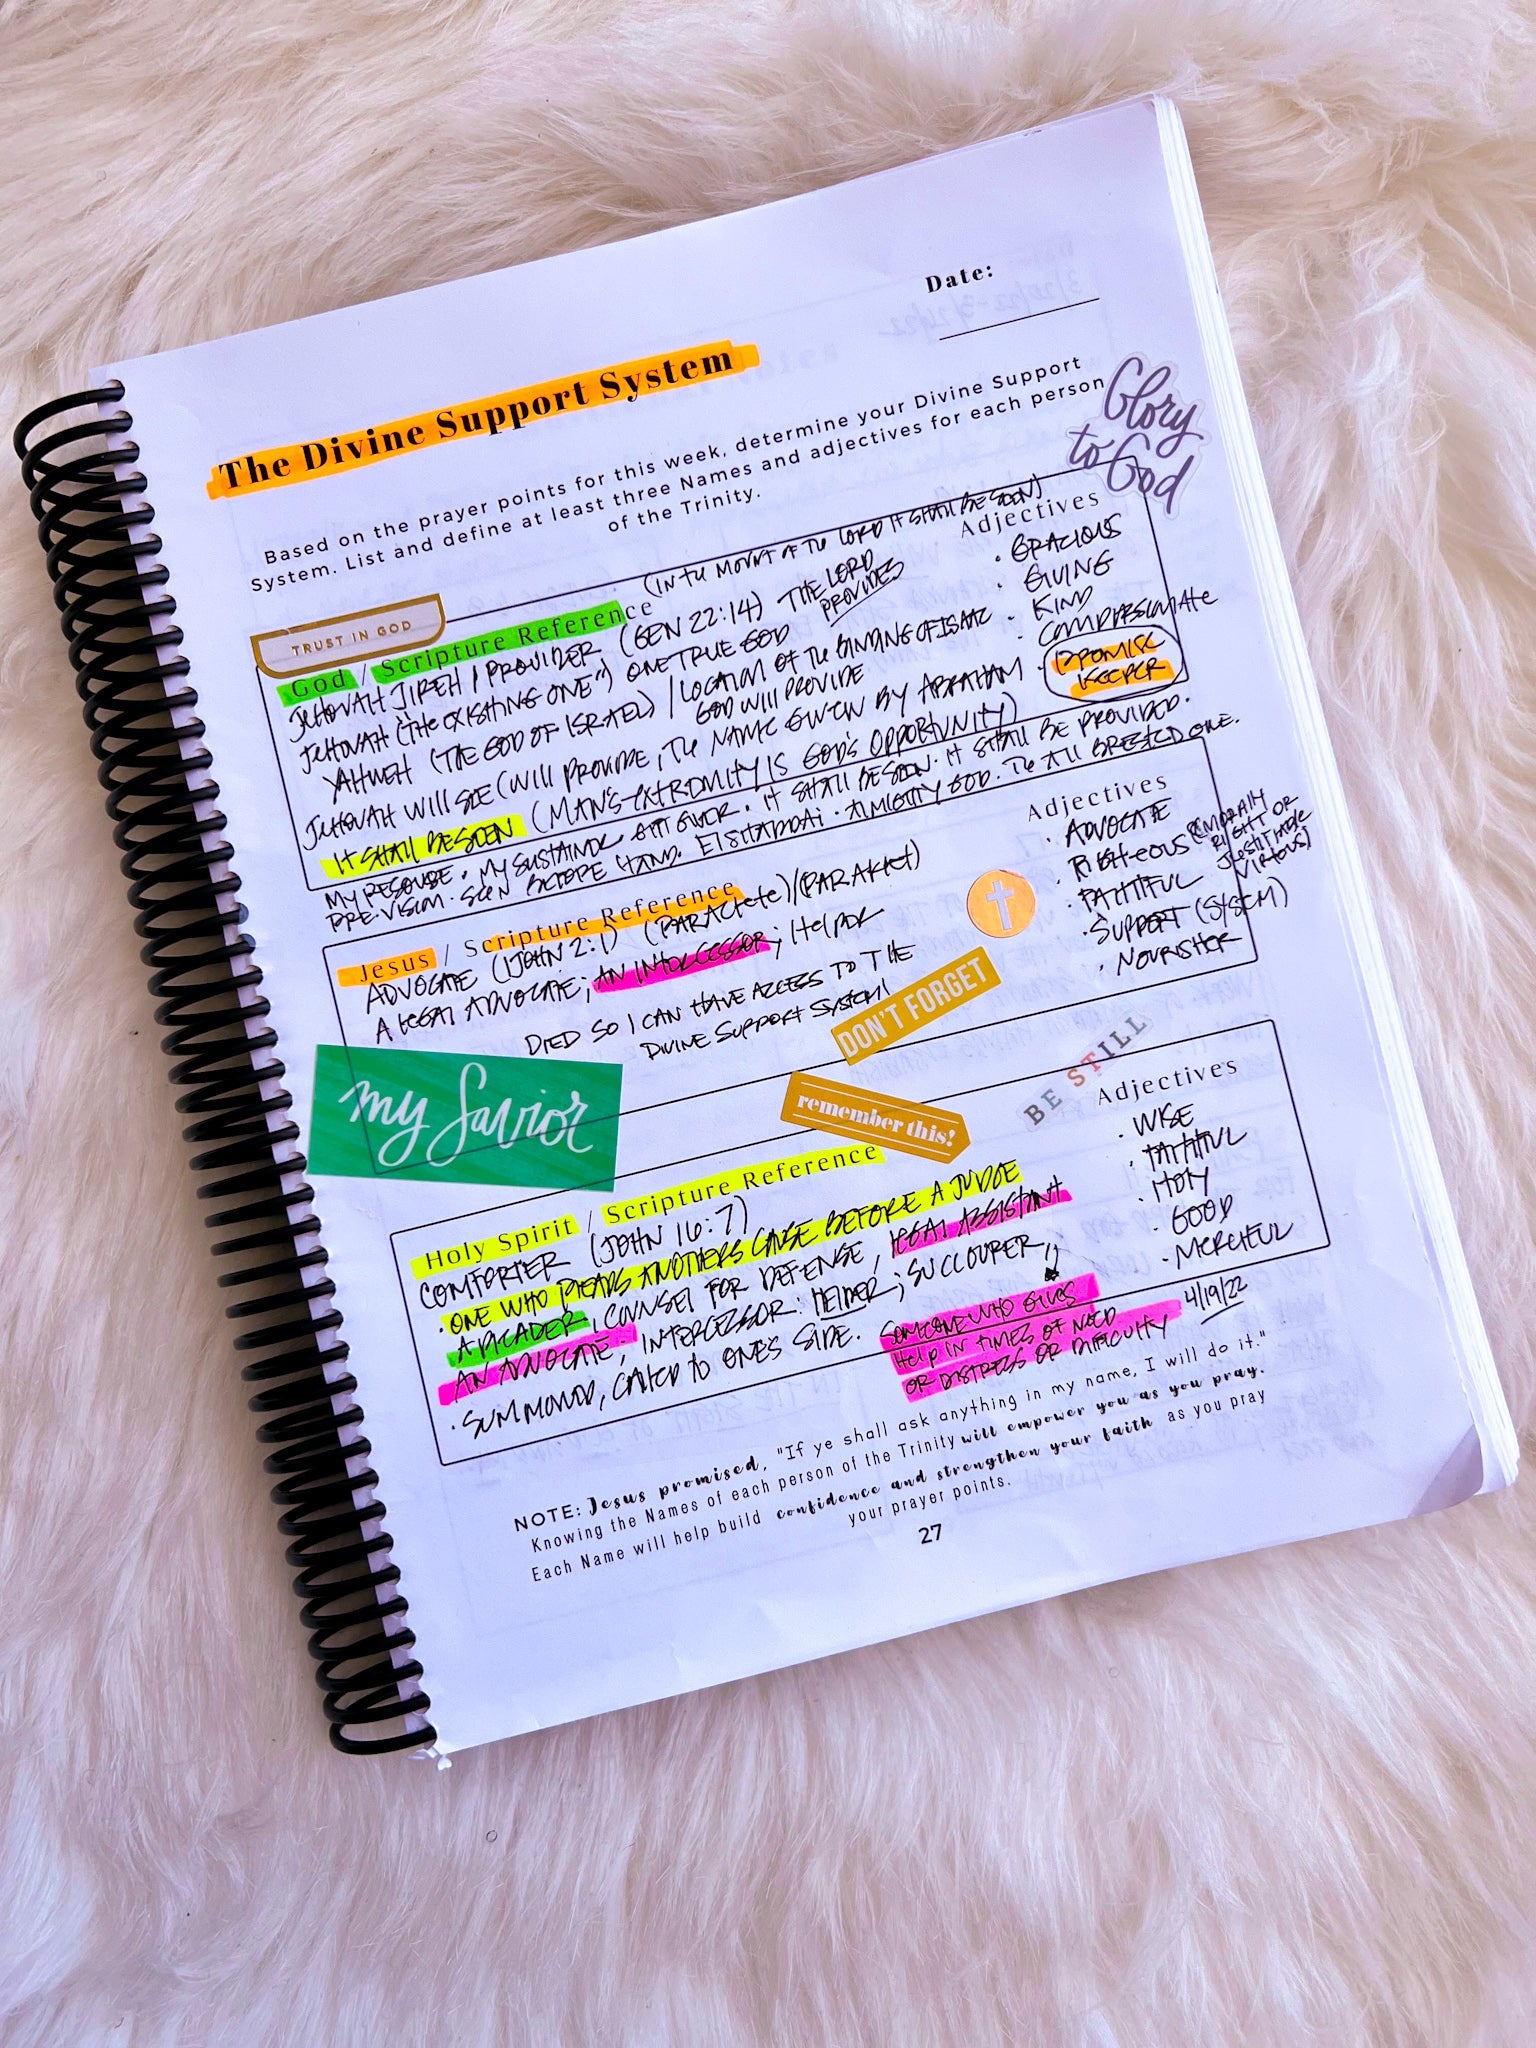 Date:
The Divine Support System
Based on the prayer points for this week, determine your Divine Support
System. List and define at least three Names and adjectives for each person
of the Trinity.
Glory
to God
(IN THE MOUNT OF THE LORD IT SHALL BE SEEN)
TRUST IN GOD
God / Scripture Reference
JEHOVAH JIREH / PROVIDER (GEN 22:14) THE LORD
PROVIDES
JEHOVAH ("THE EXISTING ONE") ONE TRUE GOD
YAHWEH (THE GOD OF ISRAEL) / LOCATION OF THE BINDING OF ISAAC
GOD WILL PROVIDE
JEHOVAH WILL SEE (WILL PROVIDE, THE NAME GIVEN BY ABRAHAM
IT SHALL BE SEEN (MAN'S EXTREMITY IS GOD'S OPPORTUNITY)
MY RESOURCE. MY SUSTAINOR. GIFT GIVER. IT SHALL BE SEEN. IT SHALL BE PROVIDED.
PRE-VISION. SEEN BEFORE HAND. El SHADDAI. ALMIGHTY GOD. THE ALL BREASTED ONE.
Adjectives
• GRACIOUS
• GIVING
• KIND
• COMPASSIONATE
• PROMISE
KEEPER
Jesus / Scripture Reference
ADVOCATE (1JOHN 2:1) (PARACLETE)/(PARAKLET)
A LEGAL ADVOCATE; AN INTERCESSOR; HELPER
DIED SO I CAN HAVE ACCESS TO THE
DIVINE SUPPORT SYSTEM!
Adjectives
• ADVOCATE
• RIGHTEOUS (MORALLY
RIGHT OR
JUSTIFIABLE
VIRTUOUS)
• FAITHFUL
• SUPPORT (SYSTEM)
• NOURISHER
my Savior
DON'T FORGET
remember this!
BE STILL
Holy Spirit / Scripture Reference
COMFORTER (JOHN 16:7)
• ONE WHO PLEADS ANOTHERS CAUSE BEFORE A JUDGE
A PLEADER, COUNSEL FOR DEFENSE, LEGAL ASSISTANT
AN ADVOCATE; INTERCESSOR: HELPER; SUCCOURER
• SUMMONED, CALLED TO ONE'S SIDE.
SOMEONE WHO GIVES
HELP IN TIMES OF NEED
OR DISTRESS OR DIFFICULTY
Adjectives
• WISE
• FAITHFUL
• HOLY
• GOOD
• MERCIFUL
4/19/22
NOTE: Jesus promised, "If ye shall ask anything in my name, I will do it."
Knowing the Names of each person of the Trinity will empower you as you pray.
Each Name will help build confidence and strengthen your faith as you pray
your prayer points.
27